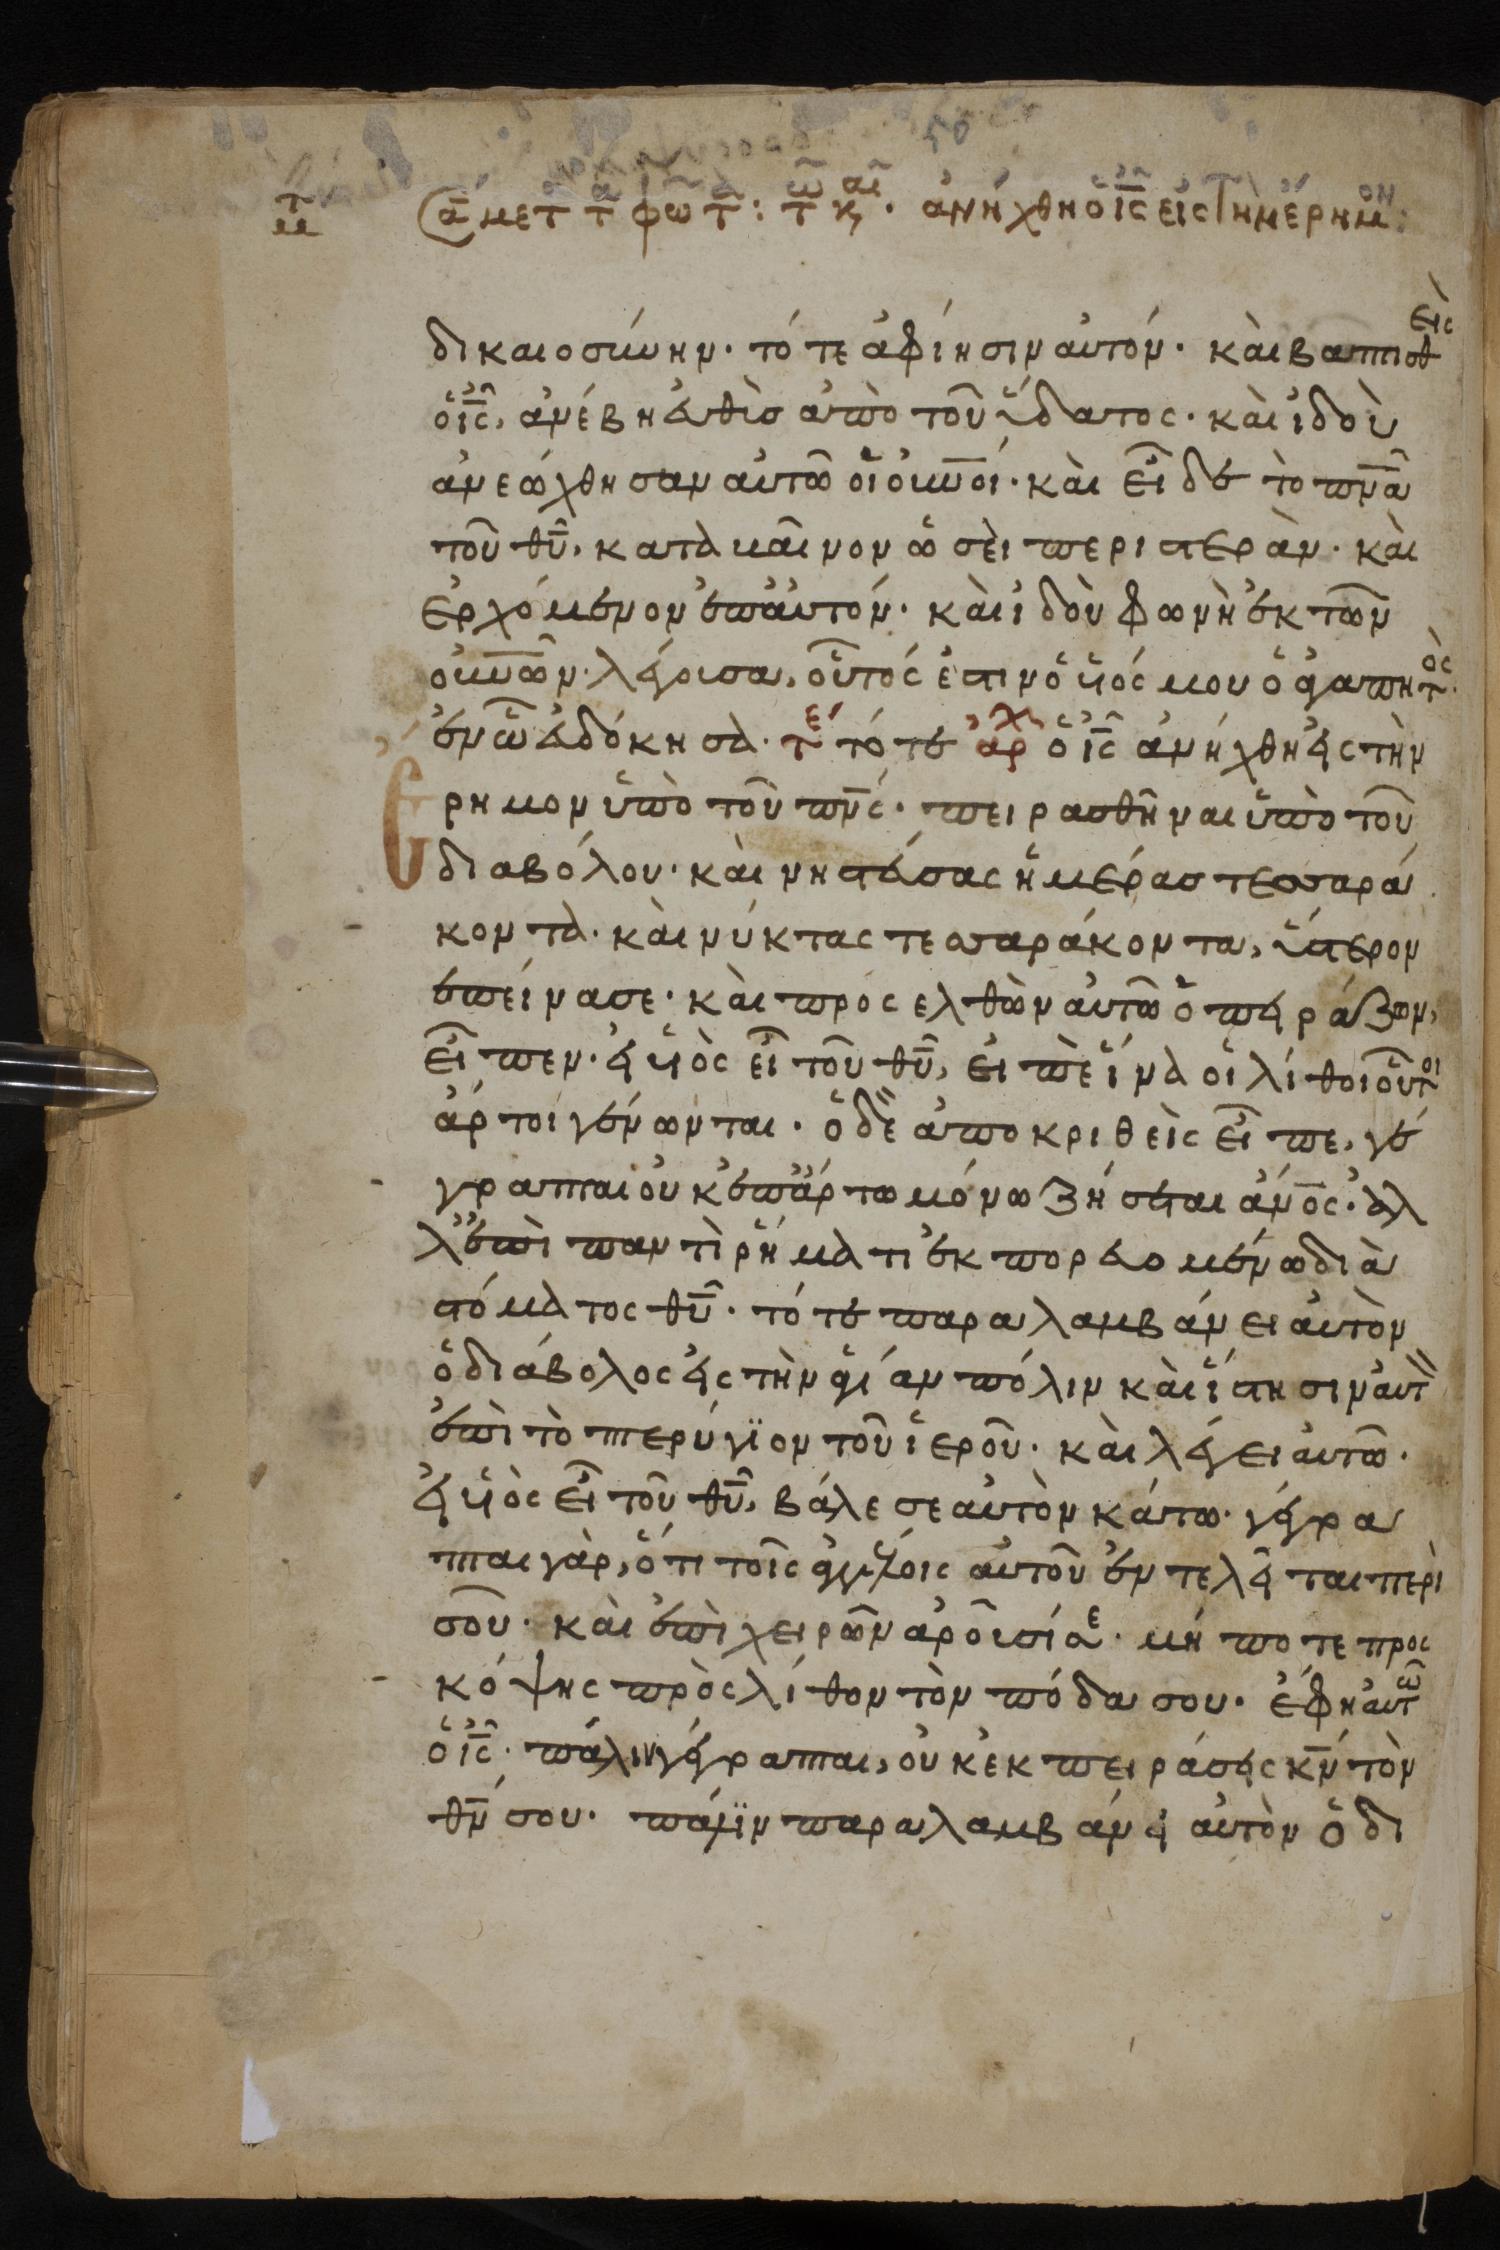 σα μετ τ φωτ: τ κ. ἀνήχθη ὁ ἰς εἰς τὴν ἔρημον:
δικαιοσύνην· τότε ἀφίησιν αυτόν· καὶ βαπτισθεὶς
ὁ ἰς, ἀνέβη ἐυθὺσ ἀπὸ τοῦ ὕδατος· καὶ ἰδοὺ
ἀνεώχθησαν αυτῶ οἱ οὐνοί· καὶ εἶδε τὸ πνα
τοῦ θυ, καταβαῖνον ὡσεὶ περιστεράν· καὶ
ἐρχόμενον ἐπ' ἀυτόν· καὶ ἰδοὺ φωνὴ ἐκ τῶν
οὐνῶν λέγουσα, οὗτός ἐστιν ὁ υἱός μου ὁ ἀγαπητὸς·
ἐν ὧ ἐυδόκησα· τε τότε ἀρχ ὁ ἰς ἀνήχθη εἰς τὴν
ἔρημον ὑπὸ τοῦ πνς· πειρασθῆναι ὑπὸ τοῦ
διαβόλου· καὶ νηστεύσας ἡμέρασ τεσσαρά
κοντα· καὶ νύκτας τεσσαράκοντα, ὕστερον
ἐπείνασε· καὶ πρόςελθὼν αυτῶ ὁ πειράζων,
εἶπεν· εἰ υἱὸς εἶ τοῦ θυ, εἰπὲ ἵνα οἱ λίθοι οὗτοι
ἄρτοι γένωνται· ὁ δὲ ἀποκριθεὶς εἶπε, γέ
γραπται οὐκ ἐπ' ἄρτω μόνω ζήσεται ἄνος· ἀλ
λ' ἐπὶ παντὶ ῥήματι ἐκπορευομένω διὰ
στόματος θυ· τότε παραλαμβάνει αυτὸν
ὁ διάβολος εἰς τὴν ἁγίαν πόλιν καὶ ἵστησιν αυτ
ἐπὶ τὸ πτερύγιον τοῦ ἱεροῦ· καὶ λέγει αυτῶ·
εἰ υἱὸς εἶ τοῦ θυ, βάλε σεαυτὸν κάτω· γέγρα
πται γὰρ, ὅτι τοῖς ἀγγέλοις αυτοῦ ἐντελεῖται περὶ
σοῦ· καὶ ἐπὶ χειρῶν ἀροῦσί σε· μή ποτε προς
κόψης πρὸς λίθον τὸν πόδα σου· ἔφη αυτῶ
ὁ ἰς· πάλιν γέγραπται, οὐκ ἐκπειράσεις κν τὸν
θν σου· πάλιν παραλαμβάνει αυτὸν ὁ δι